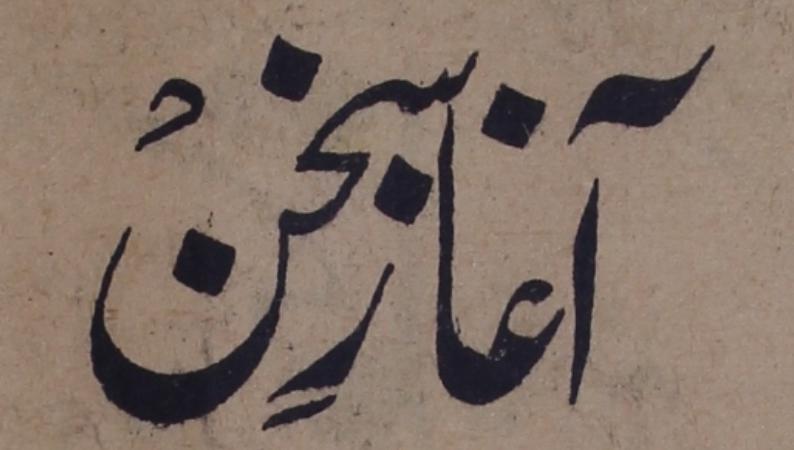 آغازِ سخنْ